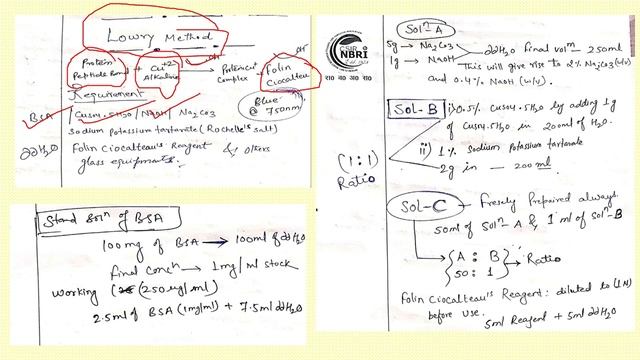 Lowry Method
Protein Peptide Bond + Cu+2 Alkaline OH
→ Potein cu+ Complex
OH
Folin Ciocalteu
Requirement
Blue @ 750nm
BSA / CuSO4.5H2O / NaOH / Na2CO3
Sodium Potassium tartarate (Rochelle's salt)
ddH2O Folin Ciocalteau's Reagent & others
glass equipments.
CSIR
NBRI
Stand Soln of BSA
100mg of BSA → 100ml of ddH2O
final conch → 1mg/ml stock
Working (250ug/ml)
2.5ml of BSA (1mg/ml) + 7.5ml ddH2O
Soln-A
5g → Na2CO3
1g → NaOH
ddH2O final volm - 250ml
This will give rise to 2% Na2CO3 (w/v)
and 0.4% NaOH (w/v)
Sol-B
i) 0.5% CuSO4.5H2O by adding 1g
of CuSO4.5H2O in 200ml of H2O.
ii) 1% Sodium Potassium tartarate
2g in — 200ml
(1:1)
Ratio
Sol-C - Fresly Prepaired always.
50ml of Soln-A & 1ml of Soln-B
{ A : B
50 : 1 } → Ratio
Folin Ciocalteau's Reagent: diluted to (1N)
before use.
5ml Reagent + 5ml ddH2O